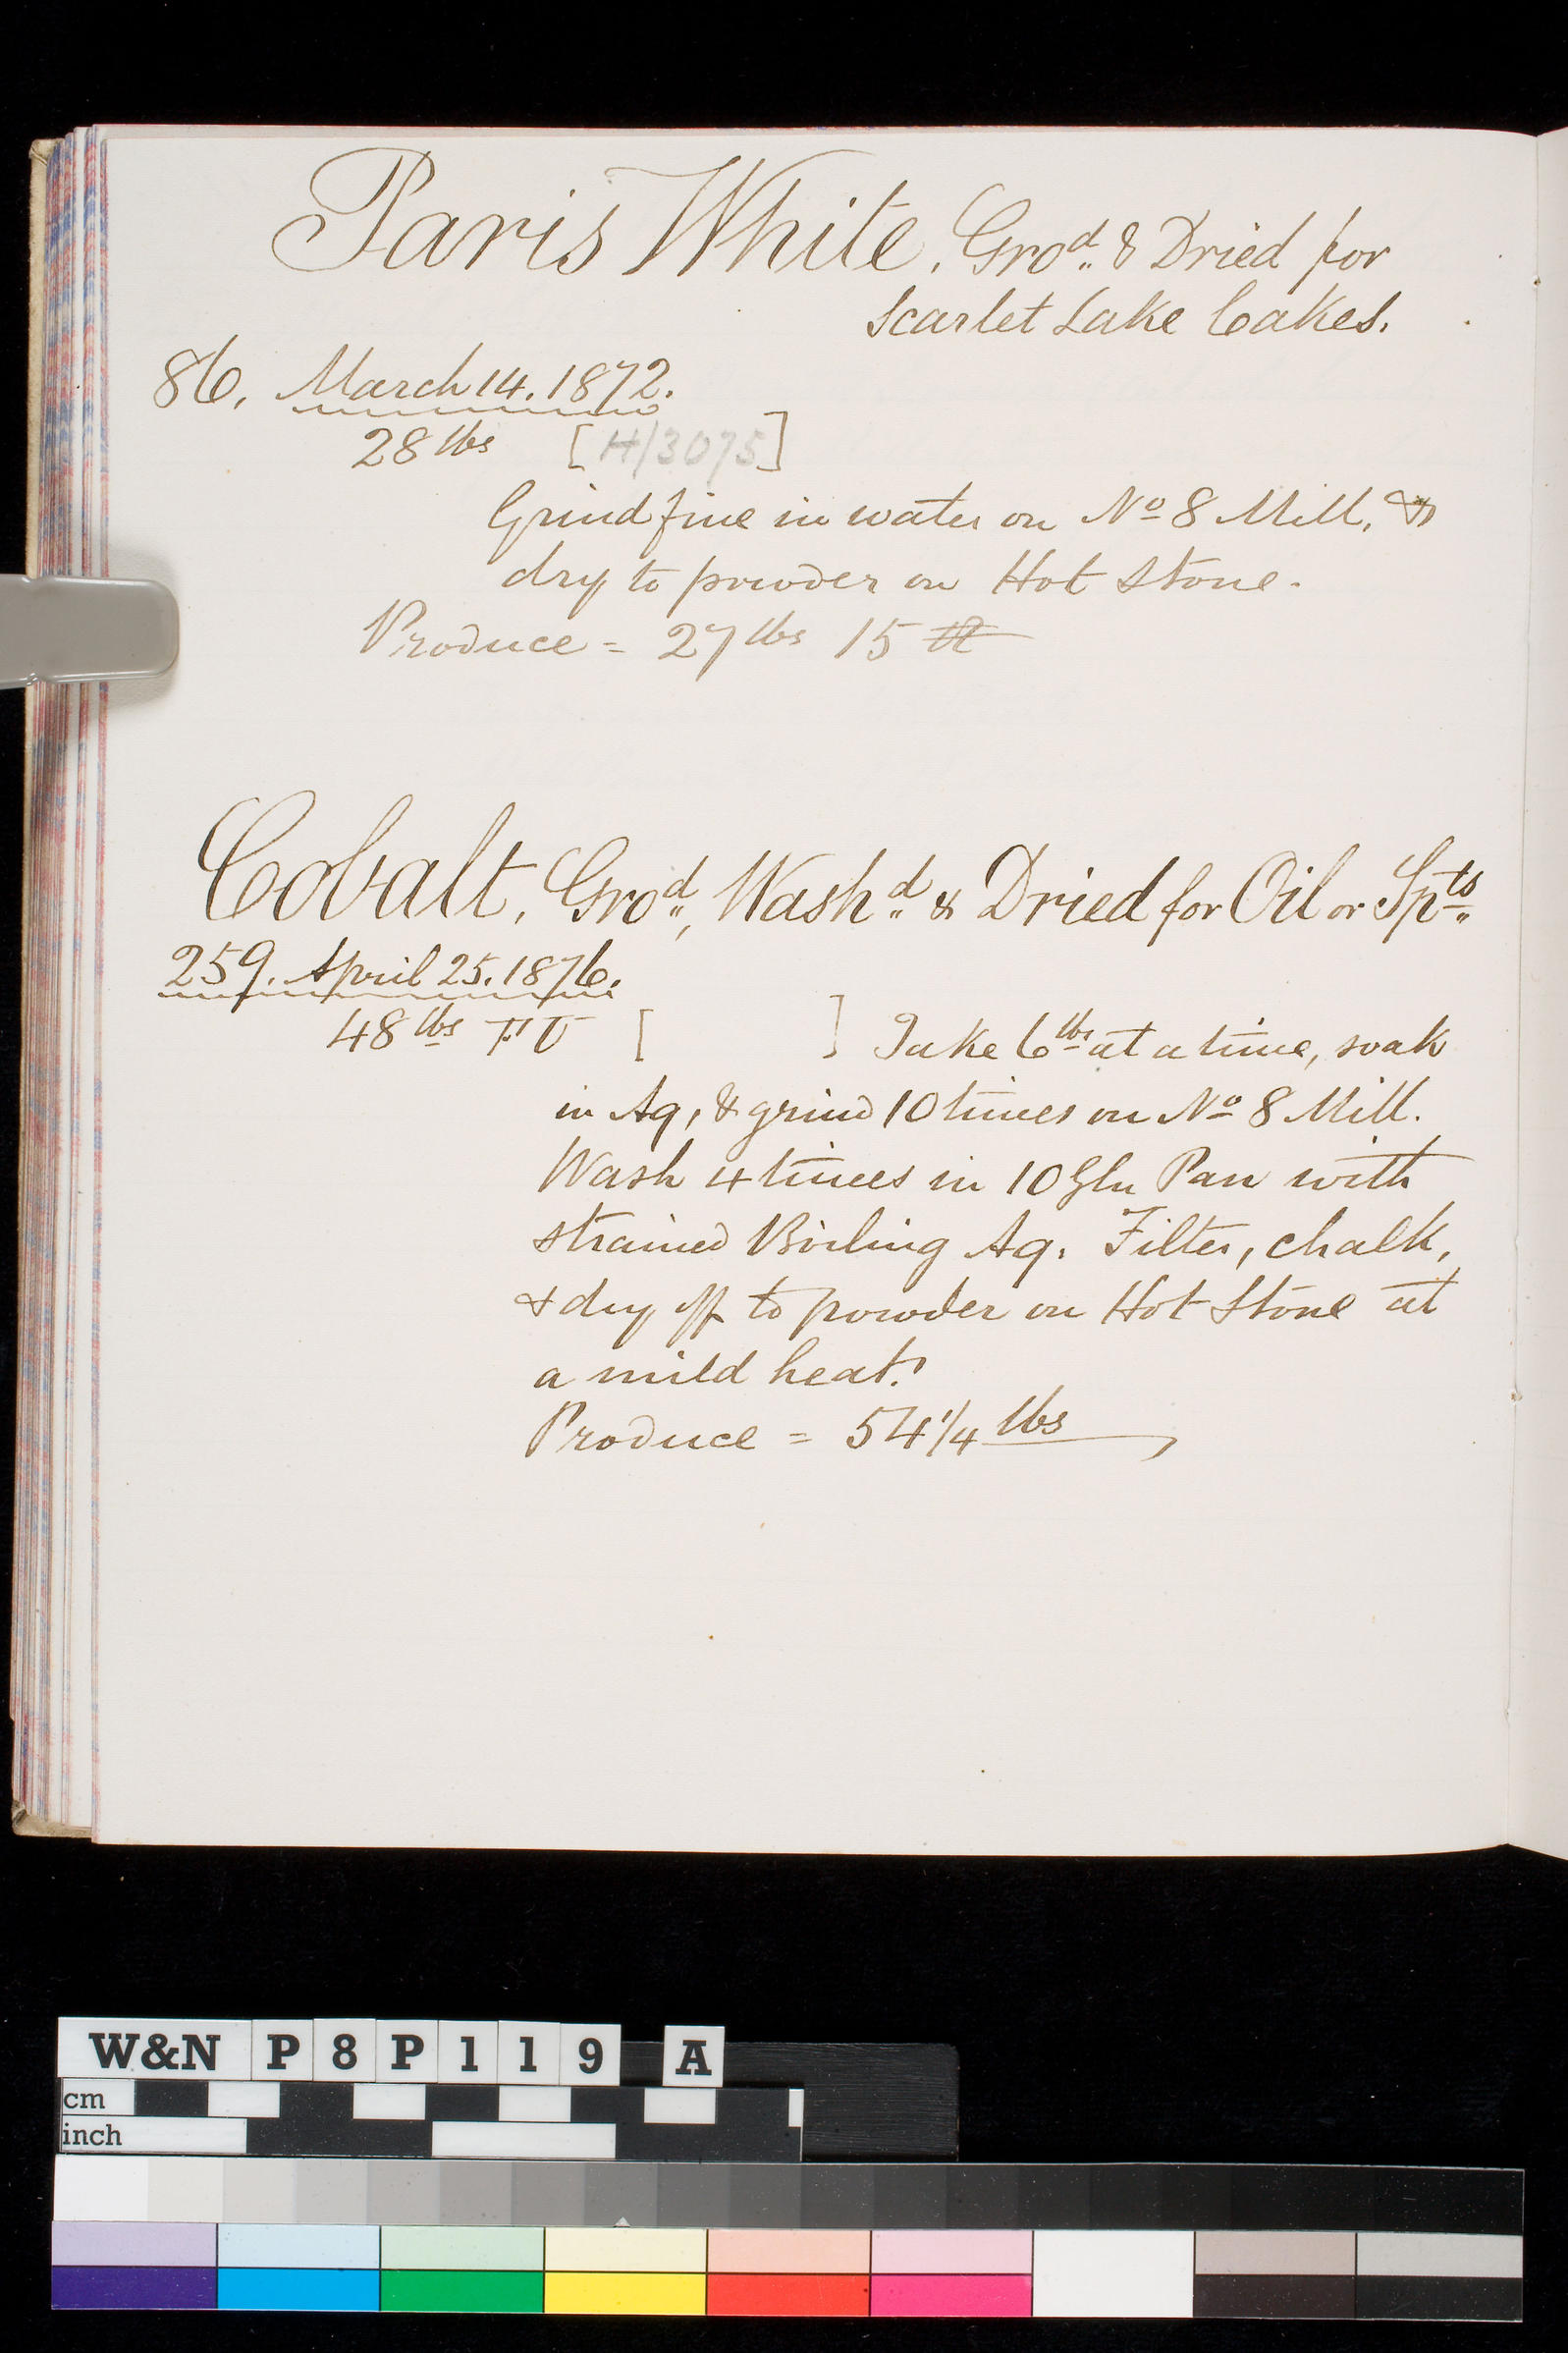 Paris White. Gro^d. & Dried for
Scarlet Lake Cakes.
86. March 14. 1872.
28 lbs [H/3075]
Grind fine in water on Nº 8 Mill, &
dry to powder on Hot Stone.
Produce = 27 lbs 15
Cobalt, Gro^d., Wash^d. & Dried for Oil or Sp^ts.
259. April 25. 1876.
48 lbs [ ] Take 6 lbs at a time, soak
in Aq, & grind 10 times on Nº 8 Mill.
Wash 4 times in 10 Gln Pan with
strained Boiling Aq. Filter, chalk,
& dry off to powder on Hot Stone at
a mild heat.
Produce = 54 1/4 lbs
W&N P8P119 A
cm
inch